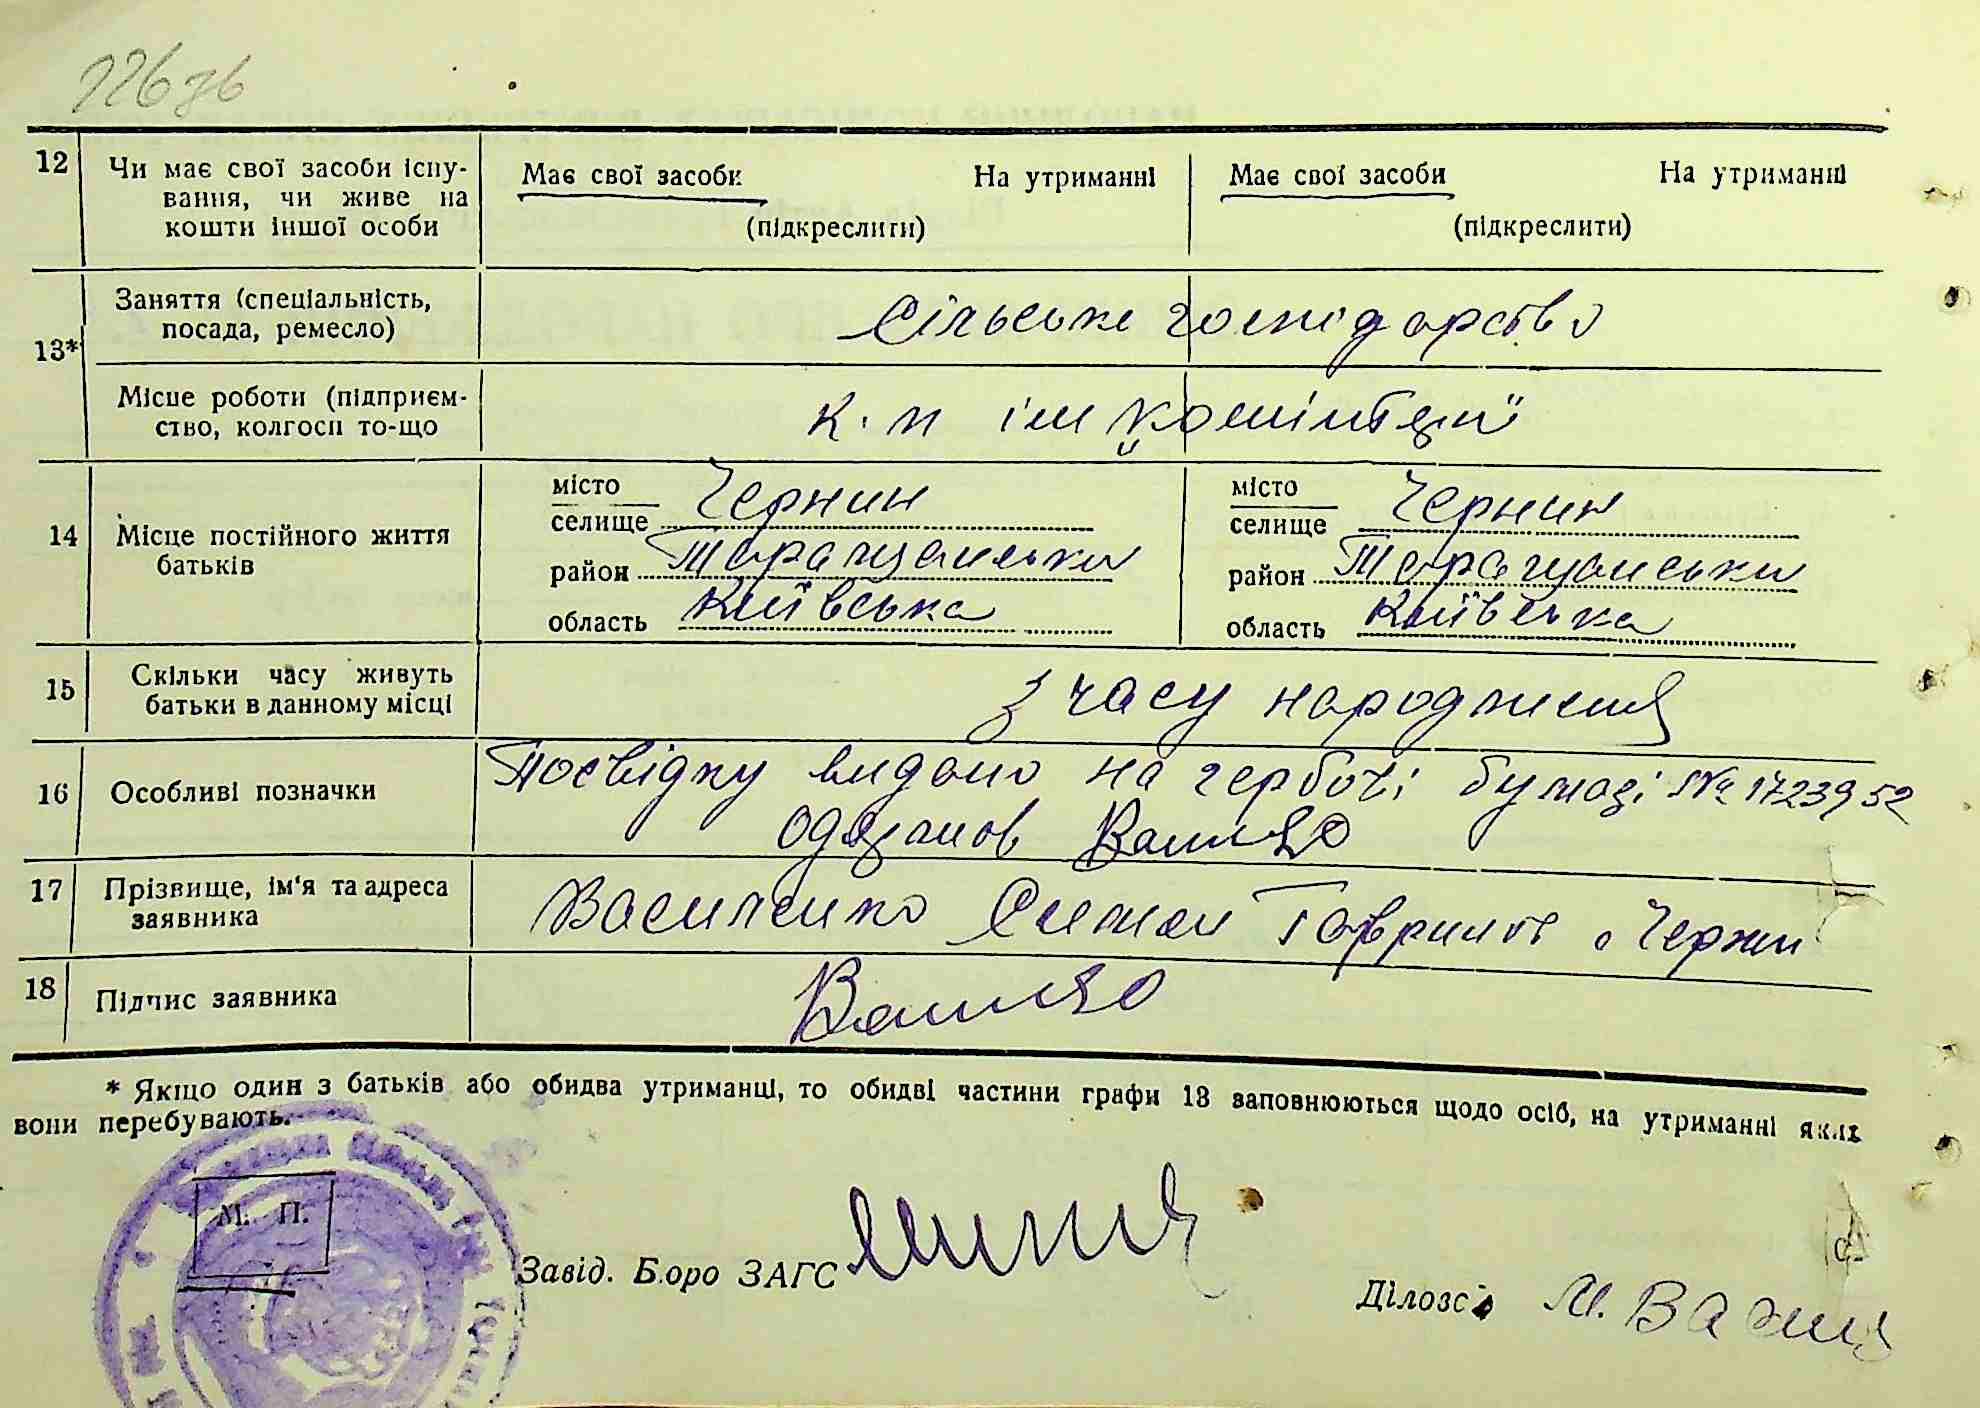 12 Чи має свої засоби існу-
вання, чи живе на
кошти іншої особи
Має свої засоби На утриманні
(підкреслити)
Має свої засоби На утриманні
(підкреслити)
13* Заняття (спеціальність,
посада, ремесло)
Сільське господарство
Місце роботи (підприєм-
ство, колгосп то-що
к.п ім
14 Місце постійного життя
батьків
місто
селище Чернин
район Таращанський
область Київська
місто
селище Чернин
район Таращанський
область Київська
15 Скільки часу живуть
батьки в данному місці
з часу народження
16 Особливі позначки
Посвідку видано на гербові бумазі № 1723952
17 Прізвище, ім'я та адреса
заявника
Василенко Гаврилов Чернин
18 Підпис заявника
* Якщо один з батьків або обидва утриманці, то обидві частини графи 13 заповнюються щодо осіб, на утриманні яких
вони перебувають.
М. П.
Завід. Бюро ЗАГС
Діловод М.